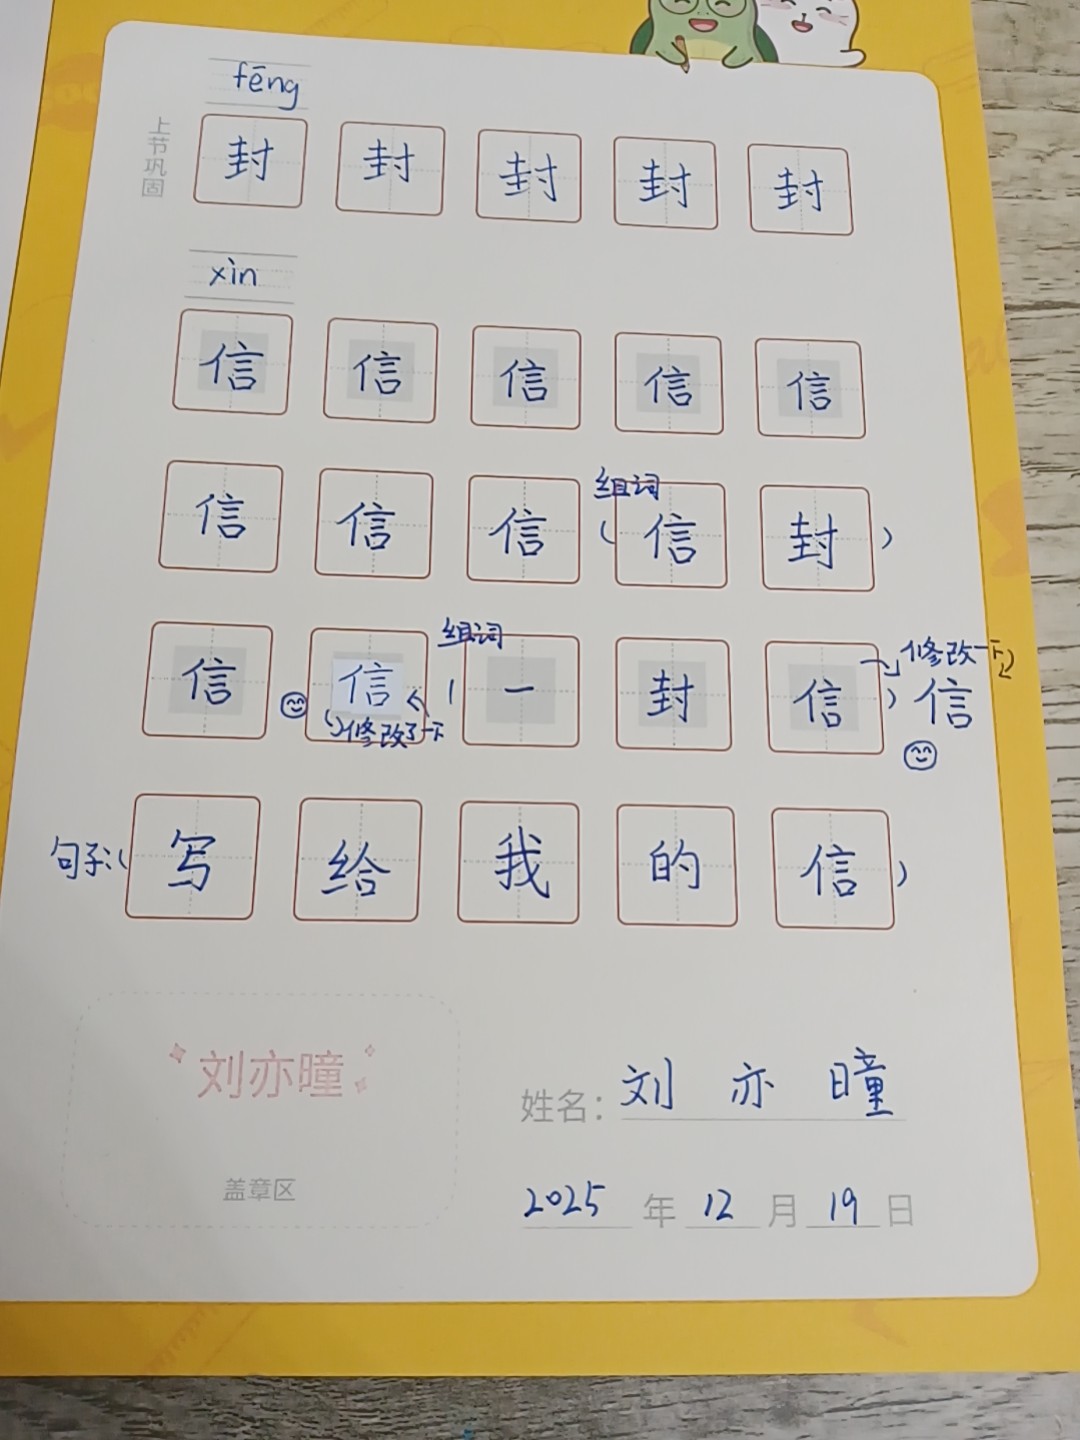 fēng
上节巩固
封 封 封 封 封
xìn
信 信 信 信 信
组词
信 信 信 (信 封)
组词
修改一下
信 信 (一 封 信) 信
修改了一下
句子:(写 给 我 的 信)
刘亦瞳
姓名: 刘 亦 瞳
盖章区
2025 年 12 月 19 日